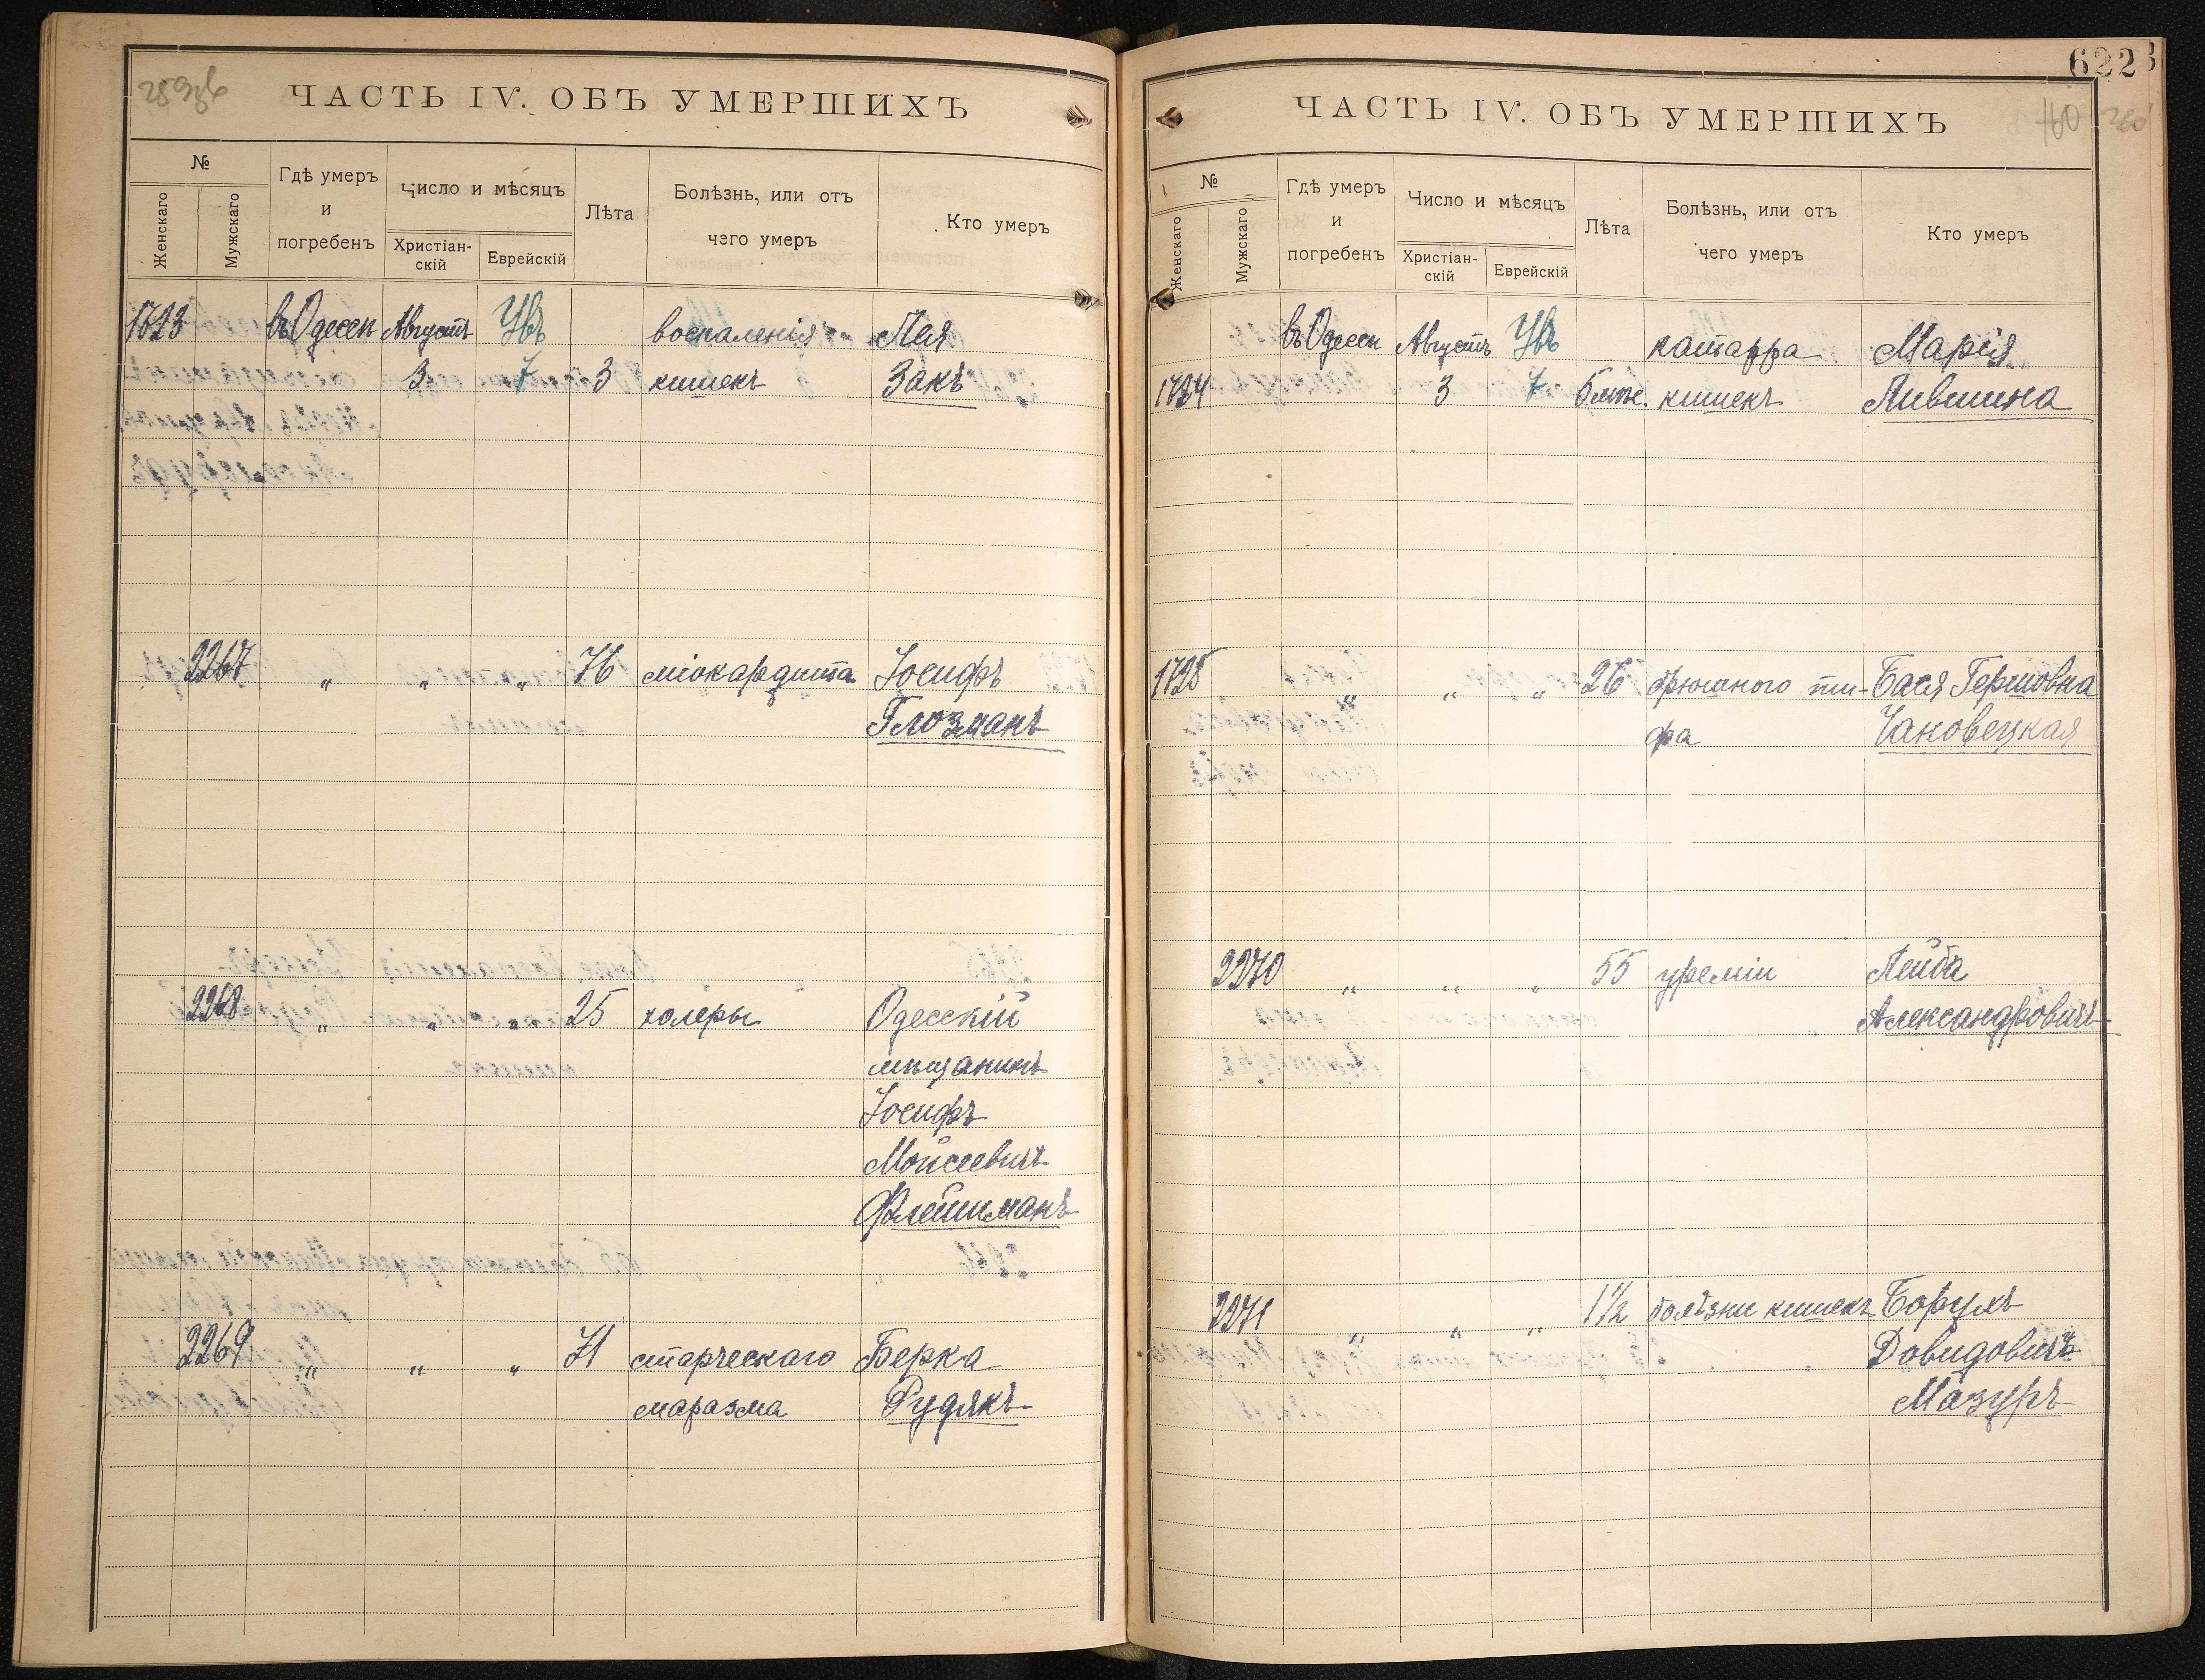 ЧАСТЬ IV. ОБЪ УМЕРШИХЪ
№
Женскаго
Мужскаго
Гдѣ умеръ
и
погребенъ
Число и мѣсяцъ
Христіан-
скій
Еврейскій
Лѣта
Болѣзнь, или отъ
чего умеръ
Кто умеръ
1723 въ Одессѣ Августъ Увъ воспаленія Лея
3 7 3 кишекъ Закъ
2267 „ „ „ 76 міокардита Іосифъ
Глозманъ
2268 „ „ „ 25 холеры Одесскій
мѣщанинъ
Іосифъ
Мойсеевичъ
Флейшманъ
2269 „ „ „ 71 старческаго Берка
маразма Рудякъ
6223
160 260
ЧАСТЬ IV. ОБЪ УМЕРШИХЪ
№
Женскаго
Мужскаго
Гдѣ умеръ
и
погребенъ
Число и мѣсяцъ
Христіан-
скій
Еврейскій
Лѣта
Болѣзнь, или отъ
чего умеръ
Кто умеръ
въ Одессѣ Августъ Увъ катарра Марія
1724 3 7 5 мѣс. кишекъ Лившина
1725 „ „ „ 26 брюшного ти- Бася Гершовна
фа Чановецкая
2270 „ „ „ 55 уреміи Лейба
Александровичъ
2271 „ „ „ 1½ болѣзни кишекъ Борухъ
Довидовичъ
Мазуръ